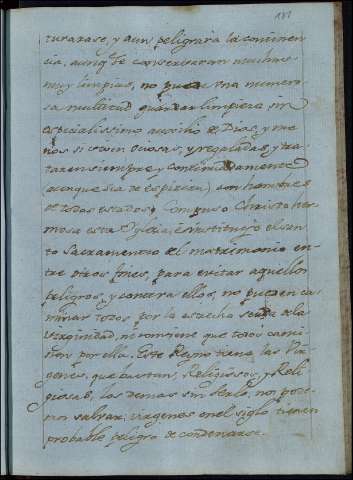 181
turarase, y aun peligrara la continen
cia, aunq.e se conservaran muchas
muy limpias, no puede una numero
sa multitud guardar limpieza sin
especialissimo auxilio de Dios, y me
nos si viven ociosas, y regaladas, y tra
taren siempre, y continuadamente
(aunque sea de espiritu) con hombres
de todos estados; Compuso Christo her
mosa esta Yglesia, è instituyò el san
to Sacramento del matrimonio en
tre otros fines, para evitar aquellos
peligros, y contra ellos, no pueden ca
minar todos por la estrecha senda de la
virginidad, ni conviene que todos cami
nen por ella. Este Reyno tiene las Vir
genes, que bastan, Religiosos, y Reli
giosas, las demas sin serlo, nos pode
mos salvar; virgenes en el siglo tienen
probable peligro de condenarse.